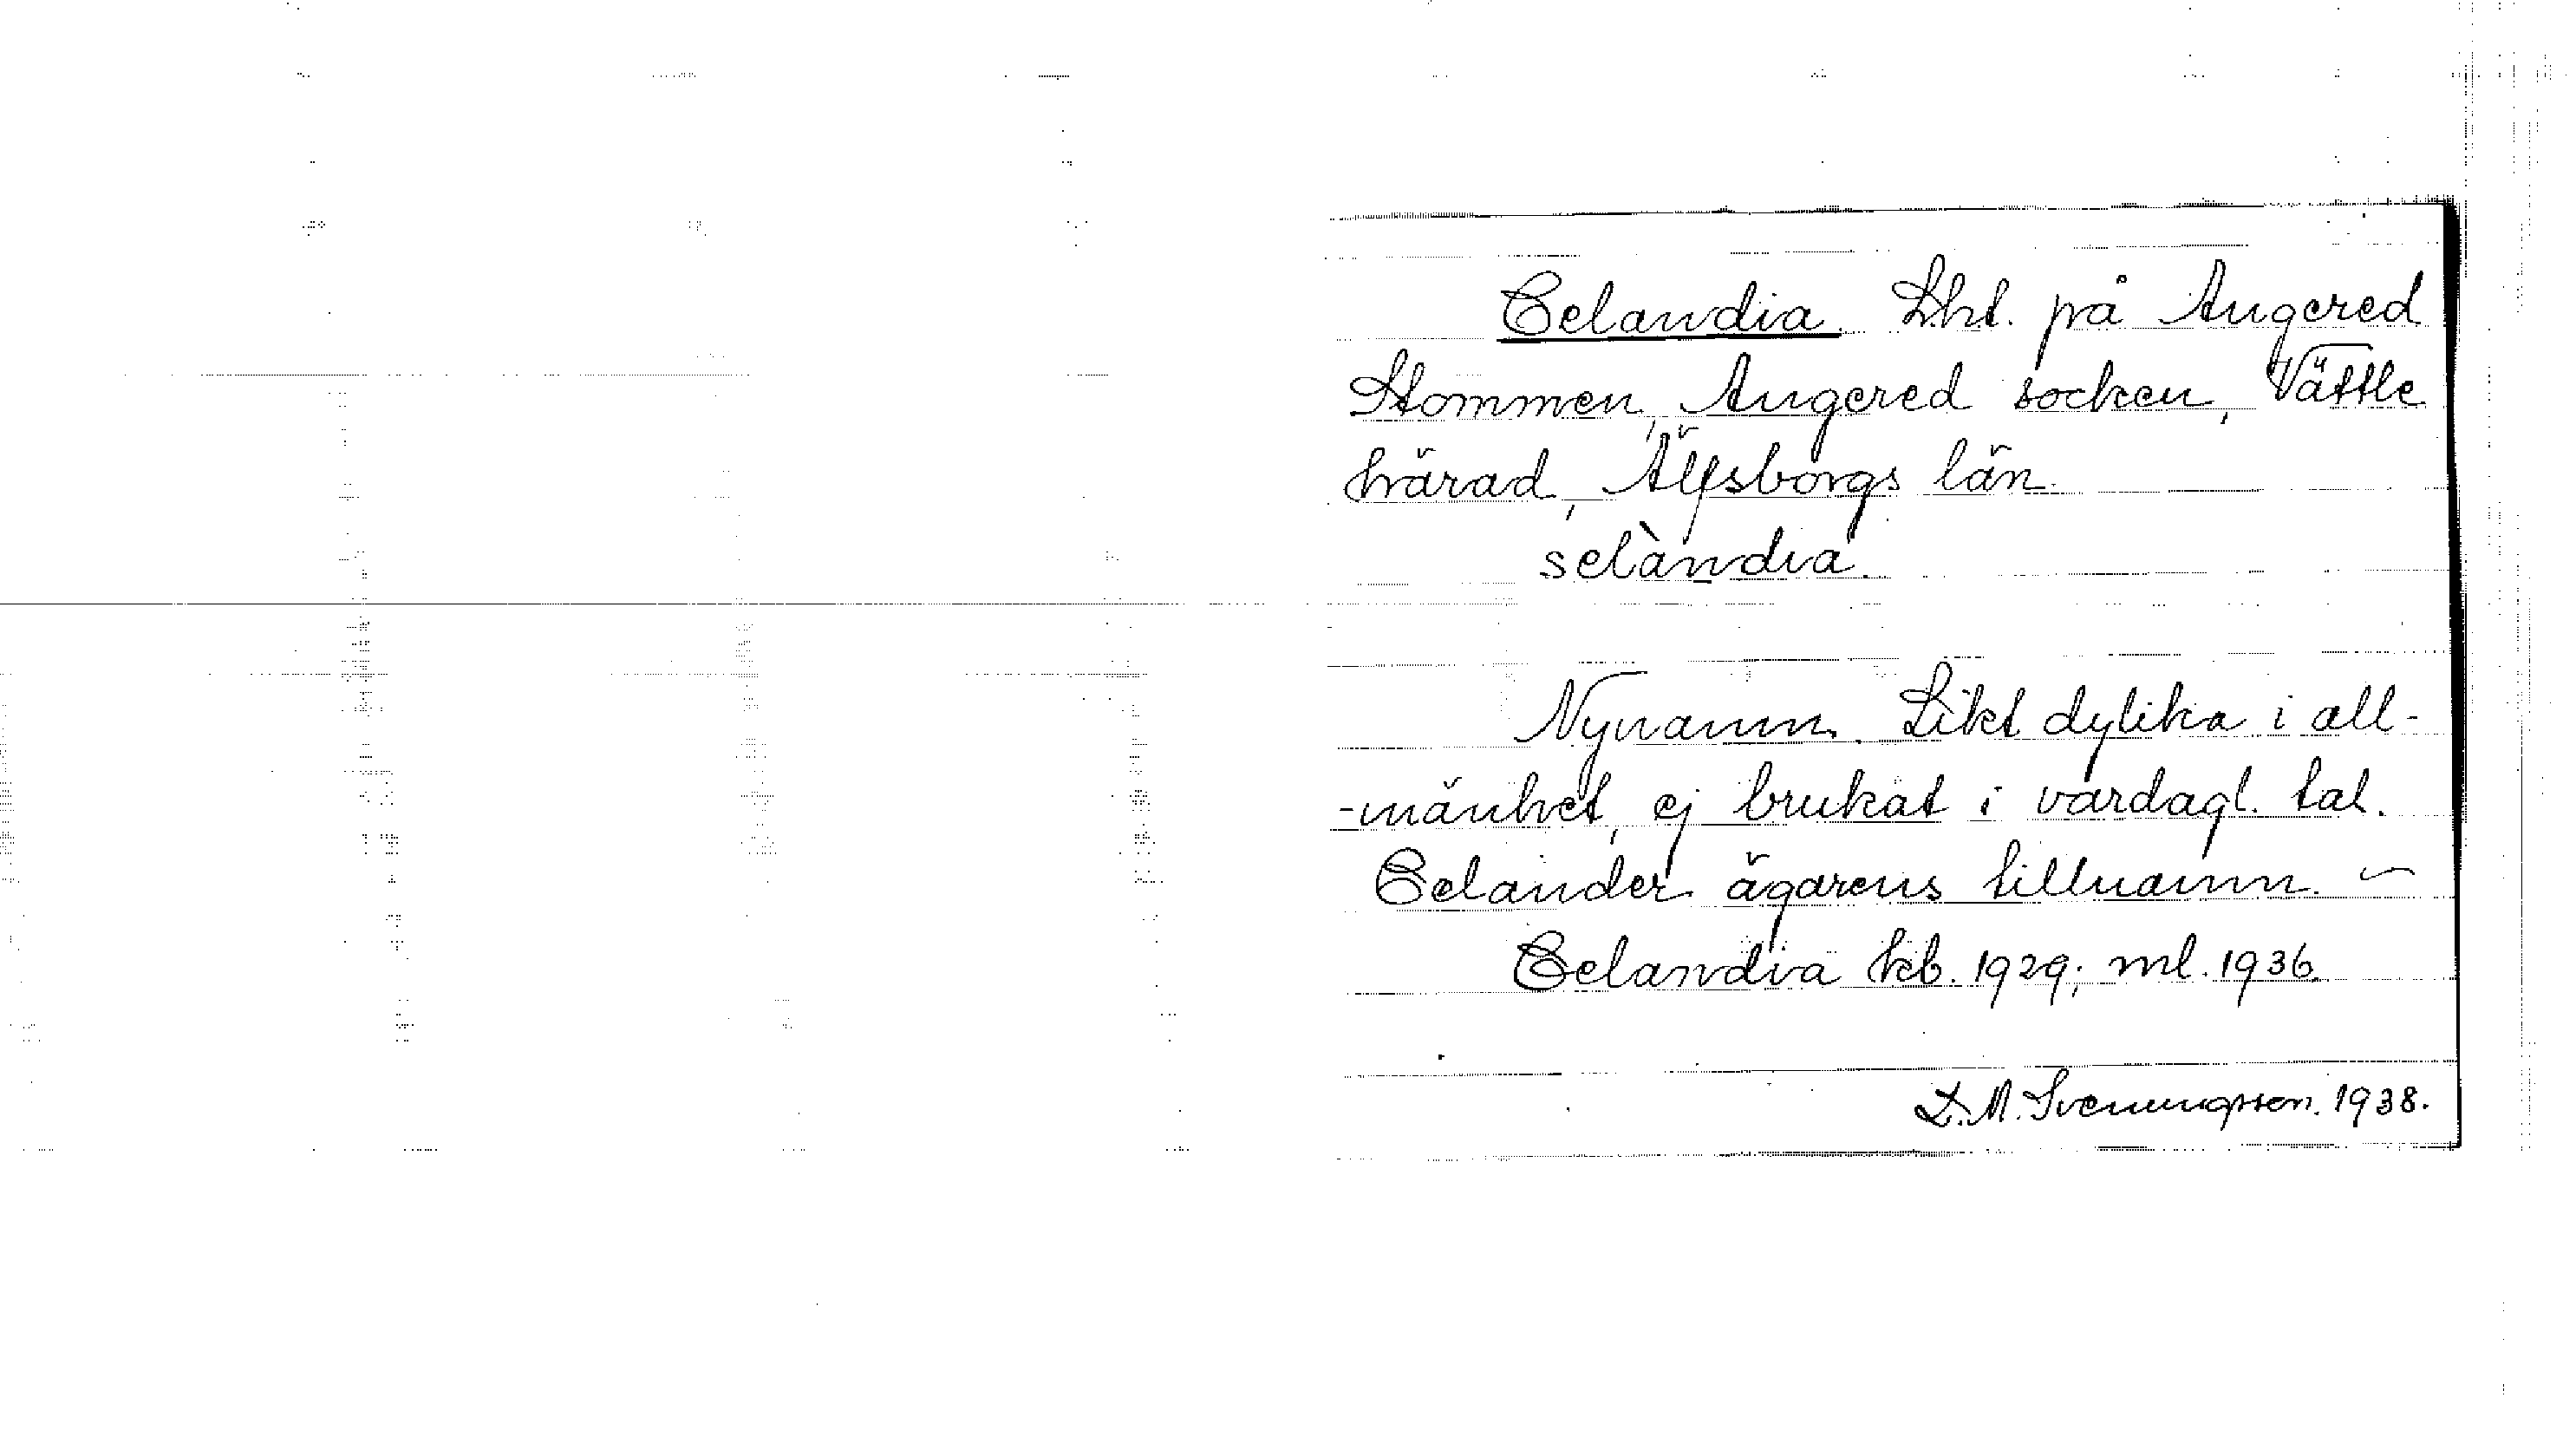 Celandia. Lht. på Angered
Stommen, Angered socken, Vättle
härad, Älfsborgs län.
selàndia.
Nynamn. Likt dylika i all-
-mänhet, ej brukat i vardagl. tal.
Celander ägarens tillnamn. –
Celandia kb. 1929; ml. 1936.
D.M. Svenungsson. 1938.